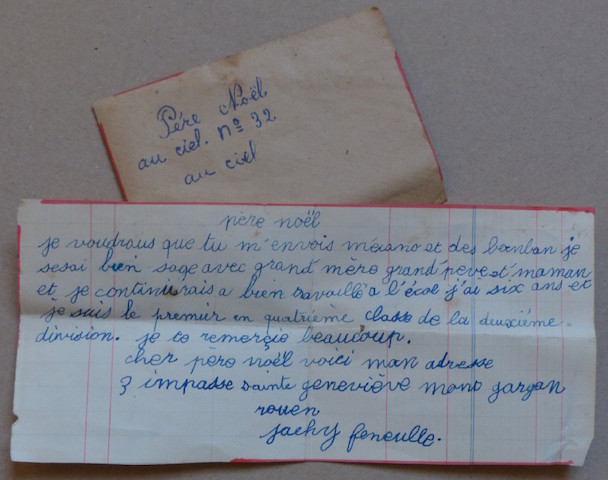 Père Noël
au ciel. nº 32
au ciel
père noël
je voudrous que tu m'envois mécano et des bonbon je
sesai bien sage avec grand mère grand père et maman
et je continurais a bien travaillé a l'école j'ai six ans et
je suis le premier en quatrième classe de la deuxième.
division. je te remercie beaucoup.
cher père noël voici mon adresse
3 impasse sainte geneviève mont gargan
rouen
jacky feneulle.